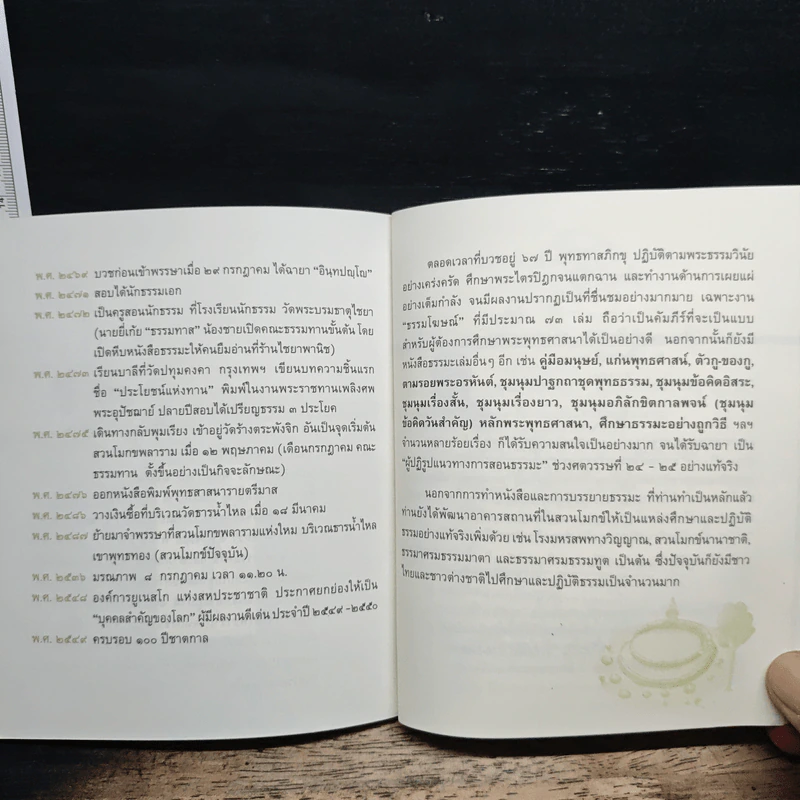 พ.ศ. ๒๔๖๙ บวชก่อนเข้าพรรษาเมื่อ ๒๙ กรกฎาคม ได้ฉายา “อินฺทปญฺโญ”
พ.ศ. ๒๔๗๑ สอบได้นักธรรมเอก
พ.ศ. ๒๔๗๒ เป็นครูสอนนักธรรม ที่โรงเรียนนักธรรม วัดพระบรมธาตุไชยา
(นายยี่เกย “ธรรมทาส” น้องชายเปิดคณะธรรมทานขั้นต้น โดย
เปิดหีบหนังสือธรรมะให้คนยืมอ่านที่ร้านไชยาพานิช)
พ.ศ. ๒๔๗๓ เรียนบาลีที่วัดปทุมคงคา กรุงเทพฯ เขียนบทความชิ้นแรก
ชื่อ “ประโยชน์แห่งทาน” พิมพ์ในงานพระราชทานเพลิงศพ
พระอุปัชฌาย์ ปลายปีสอบได้เปรียญธรรม ๓ ประโยค
พ.ศ. ๒๔๗๕ เดินทางกลับพุมเรียง เข้าอยู่วัดร้างตระพังจิก อันเป็นจุดเริ่มต้น
สวนโมกขพลาราม เมื่อ ๑๒ พฤษภาคม (เดือนกรกฎาคม คณะ
ธรรมทาน ตั้งขึ้นอย่างเป็นกิจจะลักษณะ)
พ.ศ. ๒๔๗๖ ออกหนังสือพิมพ์พุทธสาสนารายตรีมาส
พ.ศ. ๒๔๘๖ วางเงินซื้อที่บริเวณวัดธารน้ำไหล เมื่อ ๑๘ มีนาคม
พ.ศ. ๒๔๘๗ ย้ายมาจำพรรษาที่สวนโมกขพลารามแห่งใหม่ บริเวณธารน้ำไหล
เขาพุทธทอง (สวนโมกข์ปัจจุบัน)
พ.ศ. ๒๕๓๖ มรณภาพ ๘ กรกฎาคม เวลา ๑๑.๒๐ น.
พ.ศ. ๒๕๔๘ องค์การยูเนสโก แห่งสหประชาชาติ ประกาศยกย่องให้เป็น
“บุคคลสำคัญของโลก” ผู้มีผลงานดีเด่น ประจำปี ๒๕๔๙ -๒๕๕๐
พ.ศ. ๒๕๔๙ ครบรอบ ๑๐๐ ปีชาตกาล
ตลอดเวลาที่บวชอยู่ ๖๗ ปี พุทธทาสภิกขุ ปฏิบัติตามพระธรรมวินัย
อย่างเคร่งครัด ศึกษาพระไตรปิฎกจนแตกฉาน และทำงานด้านการเผยแผ่
อย่างเต็มกำลัง จนมีผลงานปรากฏเป็นที่ชื่นชมอย่างมากมาย เฉพาะงาน
“ธรรมโฆษณ์” ที่มีประมาณ ๗๓ เล่ม ถือว่าเป็นคัมภีร์ที่จะเป็นแบบ
สำหรับผู้ต้องการศึกษาพระพุทธศาสนาได้เป็นอย่างดี นอกจากนั้นก็ยังมี
หนังสือธรรมะเล่มอื่นๆ อีก เช่น คู่มือมนุษย์, แก่นพุทธศาสน์, ตัวกู-ของกู,
ตามรอยพระอรหันต์, ชุมนุมปาฐกถาชุดพุทธธรรม, ชุมนุมข้อคิดอิสระ,
ชุมนุมเรื่องสั้น, ชุมนุมเรื่องยาว, ชุมนุมอภิลักขิตกาลพจน์ (ชุมนุม
ข้อคิดวันสำคัญ) หลักพระพุทธศาสนา, ศึกษาธรรมะอย่างถูกวิธี ฯลฯ
จำนวนหลายร้อยเรื่อง ก็ได้รับความสนใจเป็นอย่างมาก จนได้รับฉายา เป็น
“ผู้ปฏิรูปแนวทางการสอนธรรมะ” ช่วงศตวรรษที่ ๒๔ - ๒๕ อย่างแท้จริง
นอกจากการทำหนังสือและการบรรยายธรรมะ ที่ท่านทำเป็นหลักแล้ว
ท่านยังได้พัฒนาอาคารสถานที่ในสวนโมกข์ให้เป็นแหล่งศึกษาและปฏิบัติ
ธรรมอย่างแท้จริงเพิ่มด้วย เช่น โรงมหรสพทางวิญญาณ, สวนโมกข์นานาชาติ,
ธรรมาศรมธรรมมาตา และธรรมาศรมธรรมทูต เป็นต้น ซึ่งปัจจุบันก็ยังมีชาว
ไทยและชาวต่างชาติไปศึกษาและปฏิบัติธรรมเป็นจำนวนมาก